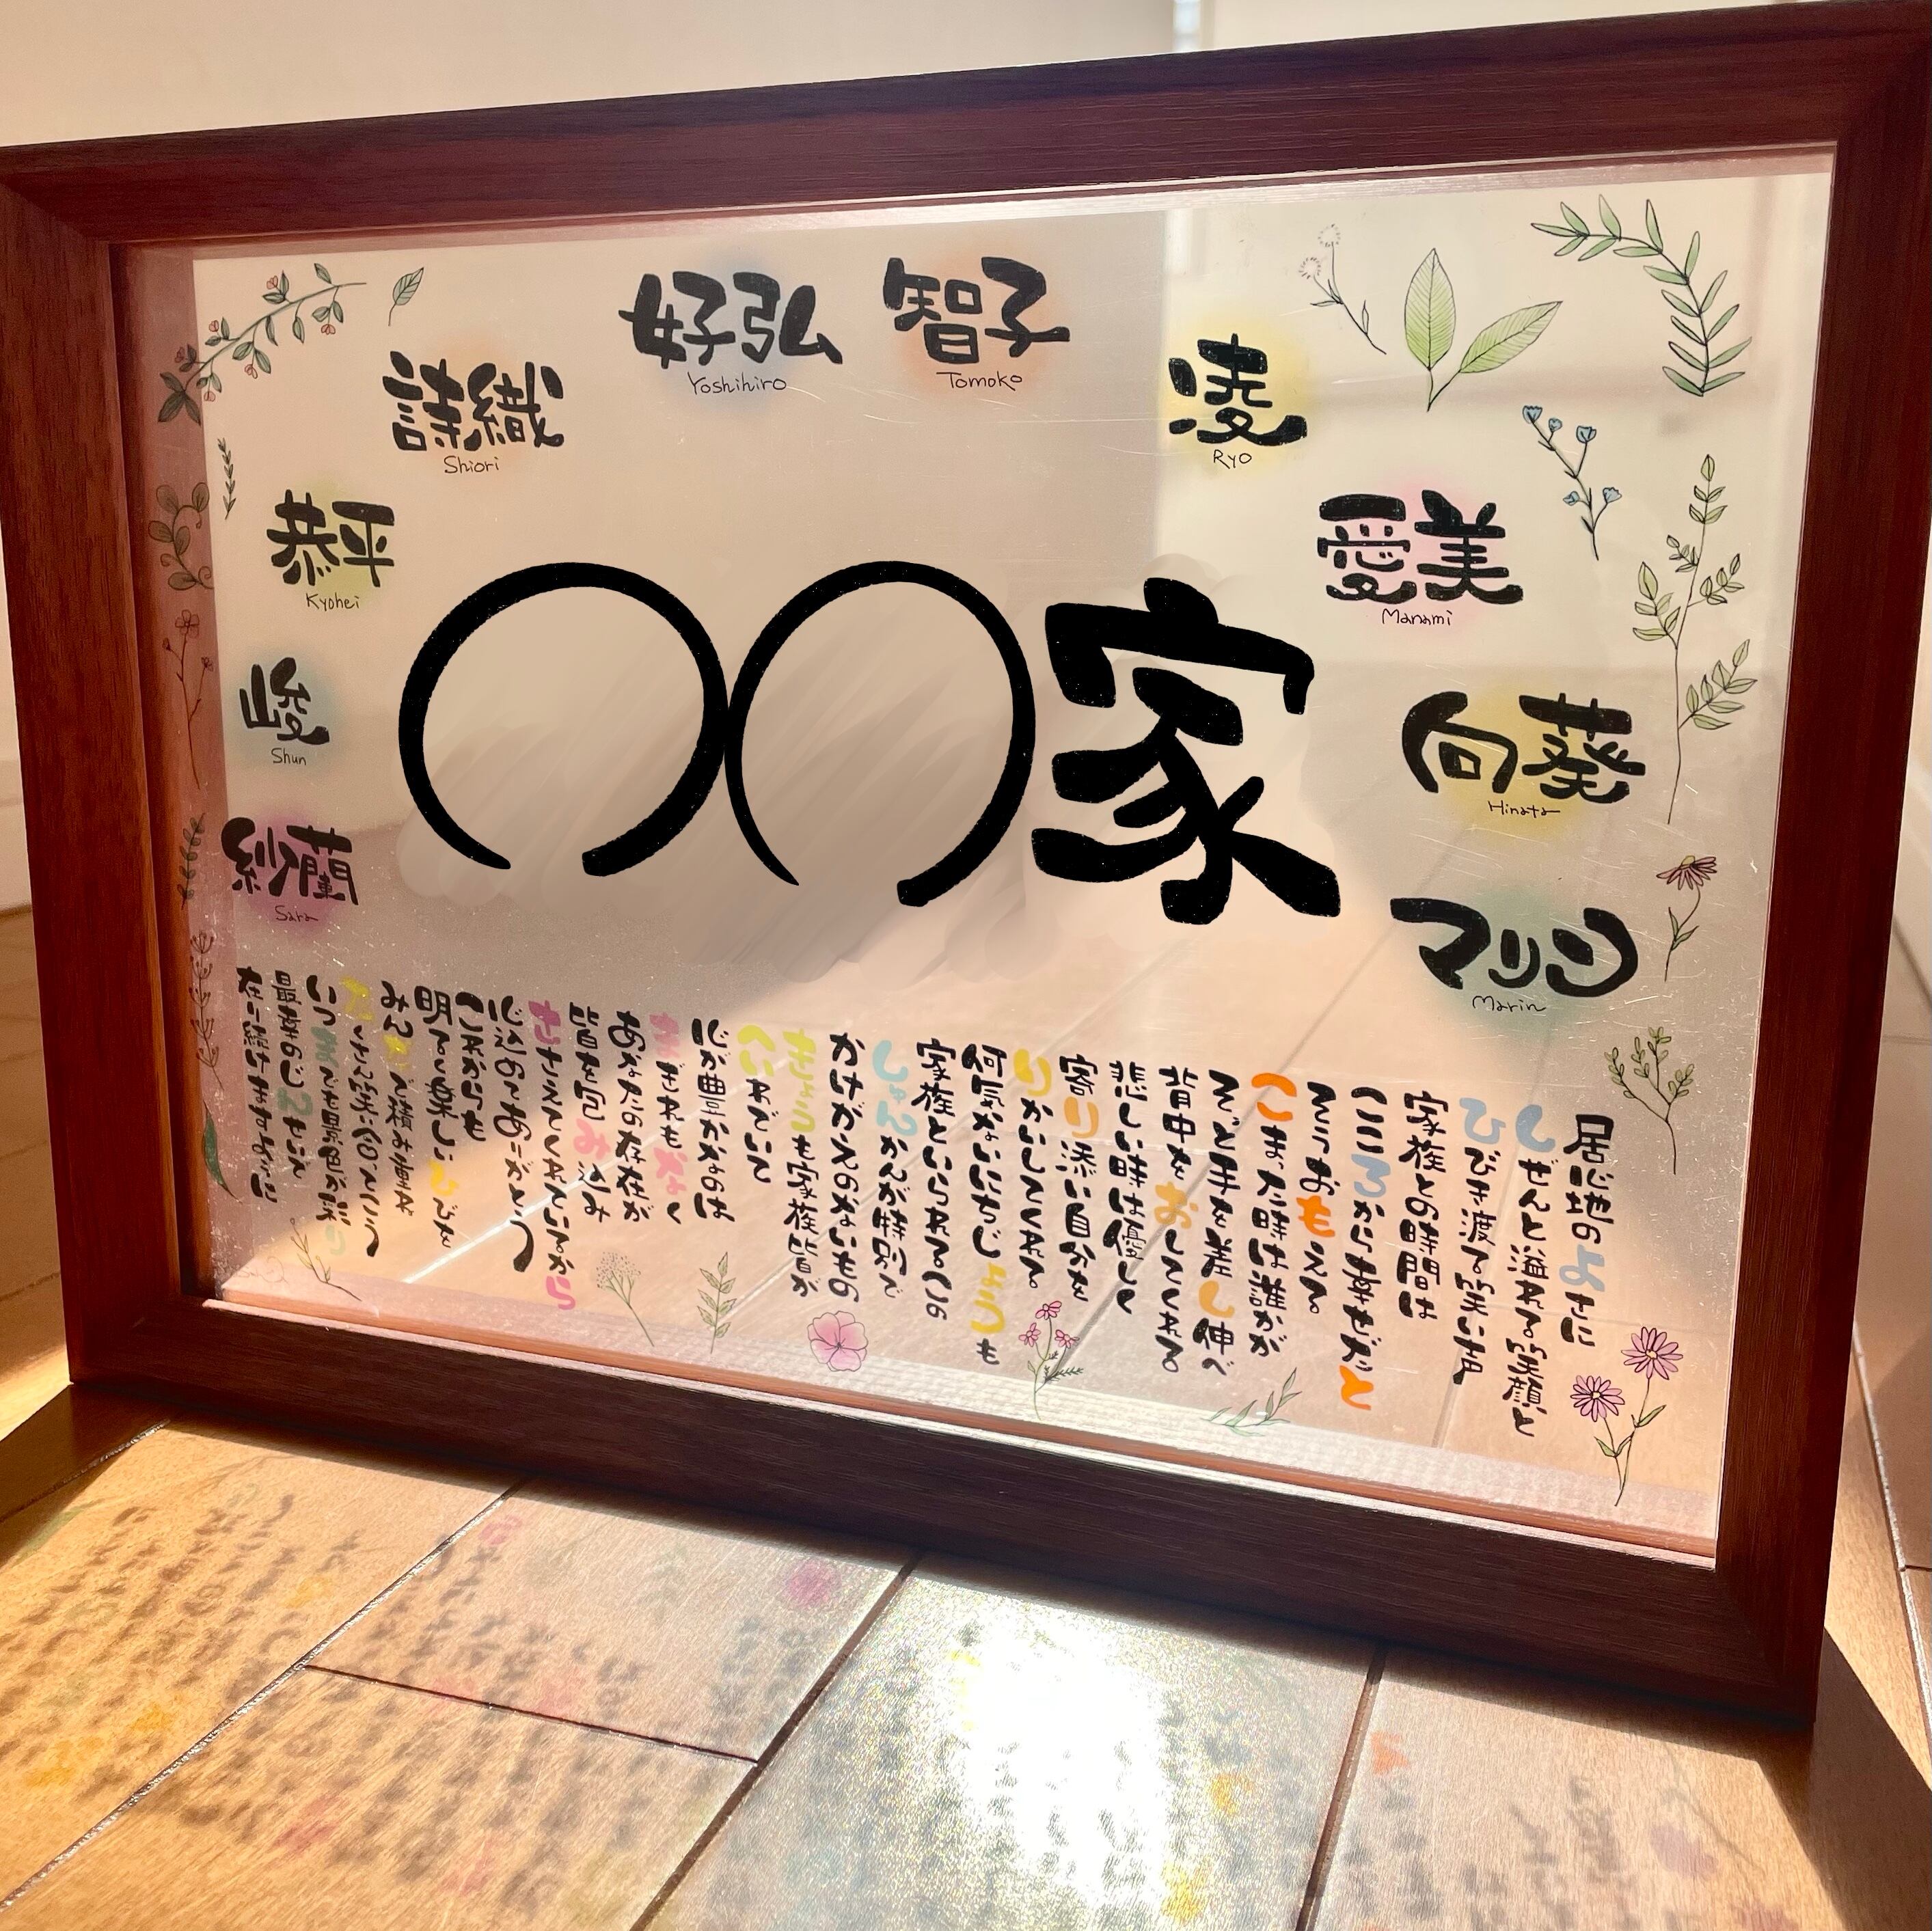 好弘
Yoshihiro
智子
Tomoko
詩織
Shiori
凌
Ryo
恭平
Kyohei
愛美
Manami
峻
Shun
〇〇家
向葵
Hinata
紗蘭
Sara
マリン
Marin
居心地のよさに
しぜんと溢れる笑顔と
ひびき渡る笑い声
家族との時間は
こころから幸せだと
そうおもえる
こまった時は誰かが
そっと手を差し伸べ
背中をおしてくれる
悲しい時は優しく
寄り添い自分を
りかいしてくれる
何気ないにちじょうも
家族といられるこの
しゅんかんが特別で
かけがえのないもの
きょうも家族皆が
へいわでいて
心が豊かなのは
まぎれもなく
あなたの存在が
皆を包み込み
ささえてくれているから
心込めてありがとう
これからも
明るく楽しいひびを
みんなで積み重ね
たくさん笑い合える
いつまでも景色が彩り
在り続けますように